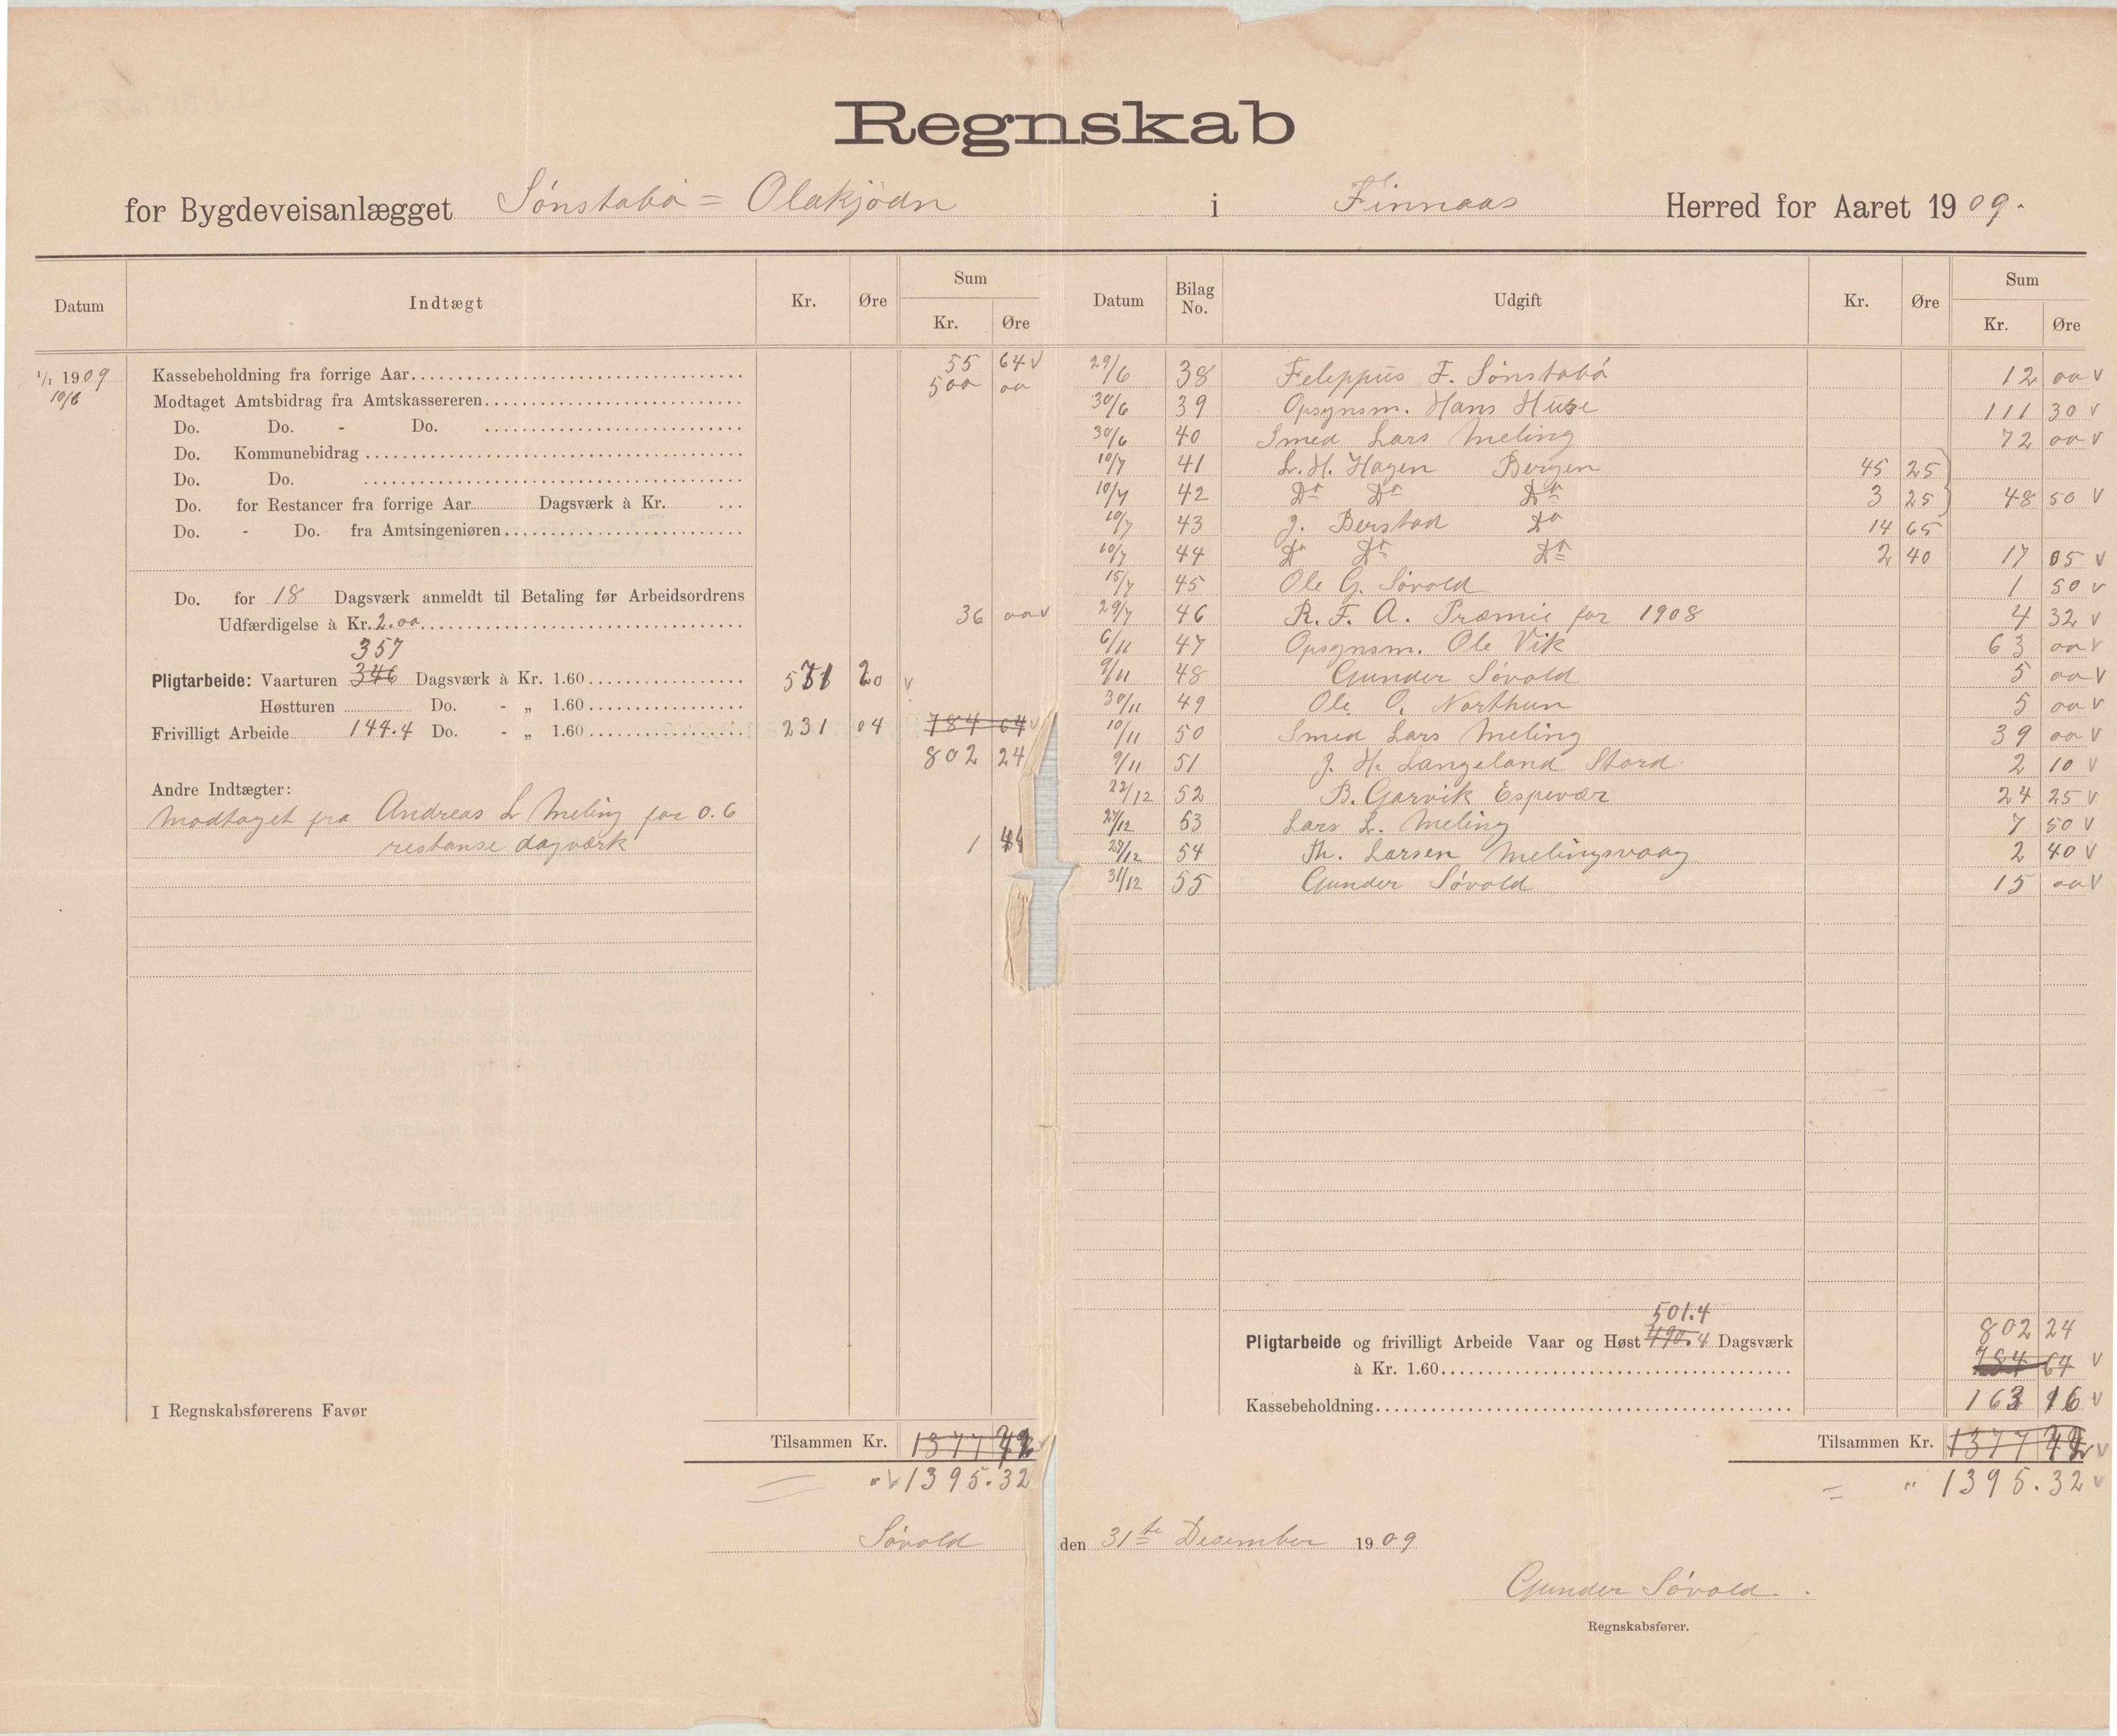 Regnskab
for Bygdeveisanlægget Sønstabø = Olakjødn i Finnaas Herred for Aaret 1909.
Datum Indtægt Kr. Øre Sum Kr. Øre
1/1 1909 Kassebeholdning fra forrige Aar 55 64 v
10/6 Modtaget Amtsbidrag fra Amtskassereren 500 00
Do. Do. - Do.
Do. Kommunebidrag
Do. Do.
Do. for Restancer fra forrige Aar Dagsværk à Kr.
Do. - Do. fra Amtsingeniøren
Do. for 18 Dagsværk anmeldt til Betaling før Arbeidsordrens
Udfærdigelse à Kr. 2.00 36 00 v
357
Pligtarbeide: Vaarturen 346 Dagsværk à Kr. 1.60 571 20 v
Høstturen Do. - „ 1.60
Frivilligt Arbeide 144.4 Do. - „ 1.60 231 04 784 64 v
802 24
Andre Indtægter:
Modtaget fra Andreas L Meling for 0.6
restanse dagværk 1 44
I Regnskabsførerens Favør
Tilsammen Kr. 1377 72 v
= " v 1395.32
Datum Bilag No. Udgift Kr. Øre Sum Kr. Øre
29/6 38 Feleppus F. Sønstabø 12 00 v
30/6 39 Opsynsm. Hans Huse 111 30 v
30/6 40 Smed Lars Meling 72 00 v
10/7 41 L. H. Hagen Bergen 45 25
10/7 42 Do Do Do 3 25 48 50 v
10/7 43 J. Berstad Do 14 65
10/7 44 Do Do Do 2 40 17 05 v
15/7 45 Ole G. Søvold 1 50 v
29/7 46 R. F. A. Præmie for 1908 4 32 v
6/11 47 Opsynsm. Ole Vik 63 00 v
9/11 48 Gunder Søvold 5 00 v
30/11 49 Ole O. Northun 5 00 v
10/11 50 Smed Lars Meling 39 00 v
9/11 51 J. H. Langeland Stord 2 10 v
22/12 52 B. Garvik Espevær 24 25 v
27/12 53 Lars L. Meling 7 50 v
29/12 54 Th. Larsen Melingsvaag 2 40 v
31/12 55 Gunder Søvold 15 00 v
501.4 802 24
Pligtarbeide og frivilligt Arbeide Vaar og Høst 490.4 Dagsværk
à Kr. 1.60 784 64 v
Kassebeholdning 163 16 v
Tilsammen Kr. 1377 72 v
= " 1395.32 v
Søvold den 31te Desember 1909
Gunder Søvold.
Regnskabsfører.